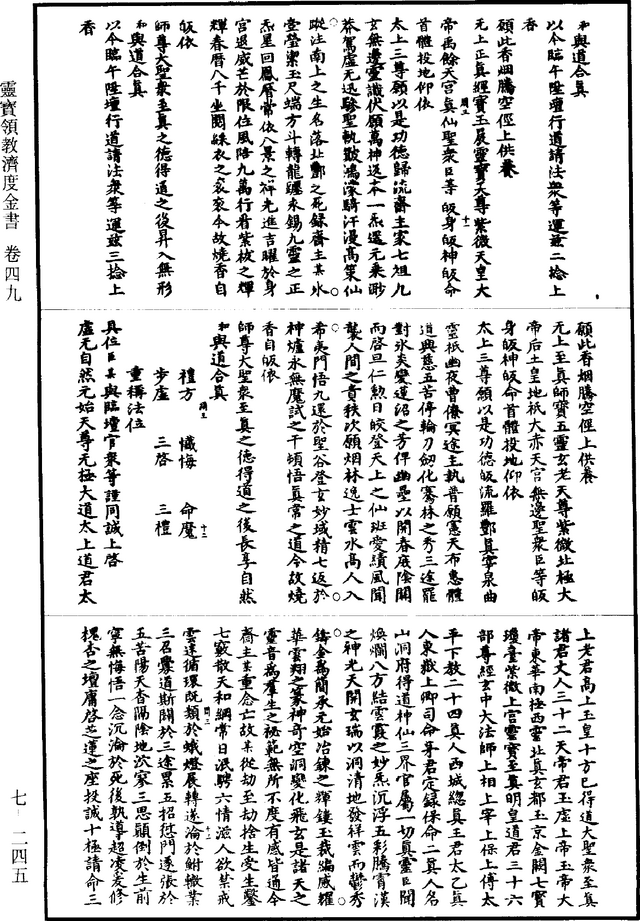 靈寶領教濟度金書 卷四九
七-二四五
和與道合真
以今臨午陞壇行道請法衆等運茲二捻上
香
願此香烟騰空徑上供養
无上正真經寶玉晨靈寶天尊紫微天皇大
帝禹餘天宮真仙聖衆臣等皈身皈神皈命
首體投地仰依
太上三尊願以是功德歸流齋主家七祖九
玄無邊靈識伏願萬神送本一炁還元乘眇
莽駕虛无迅驂聖軌皷鴻濛騎汗漫高策仙
蹤注南上之生名落北酆之死録齋主某氷
壺瑩潔玉尺端方斗轉龍躔來錫九靈之正
炁星回鳳曆常依八景之祥光進吉曜於身
宮退威芒於限位風陪九萬行看紫枚之輝
輝春曆八千坐閱綵衣之衮衮今故燒香自
皈依
師尊大聖衆至真之德得道之後昇入無形
和與道合真
以今臨午陞壇行道請法衆等運茲三捻上
香
願此香烟騰空徑上供養
无上至真師寶五靈玄老天尊紫微北極大
帝后土皇地祇大赤天宮無邊聖衆臣等皈
身皈神皈命首體投地仰依
太上三尊願以是功德皈流羅酆真宰泉曲
靈祇幽夜曹僚冥途主執普願憲天布惠體
道興慈五苦停輪刀劒化騫林之秀三途罷
對氷炎變蓮沼之芳俾幽壘以開春庭陰關
而啓旦仁勲日皎登天上之仙班愛績風聞
襲人間之貴秩次願烟林逸士雲水高人入
希夷門悟九還於聖谷登玄妙域精七返於
神爐永無魔試之干頓悟真常之道今故燒
香自皈依
師尊大聖衆至真之德得道之後長享自然
和與道合真
禮方 懺悔 命魔
步虛 三啓 三禮
重稱法位
具位臣某與臨壇官衆等謹同誠上啓
虛无自然元始天尊无極大道太上道君太
上老君高上玉皇十方已得道大聖衆至真
諸君丈人三十二天帝君玉虛上帝玉帝大
帝東華南極西靈北真玄都玉京金闕七寶
瓊臺紫微上宮靈寶至真明皇道君三十六
部尊經玄中大法師上相上宰上保上傅太
平下教二十四真人西城總真王君太乙真
人東嶽上卿司命茅君定録保命二真人名
山洞府得道神仙三界官屬一切真靈臣聞
煥爛八方結雲霞之妙炁沉浮五彩騰霄漢
之神光天開玄瑞以洞清地發祥雲而鬱秀
鑄金為簡承元始冶錬之輝鏤玉裁編威耀
華雲翔之篆神奇空洞變化飛玄是諸天之
靈音為羣生之祕範無所不度有感皆通今
齋主某重念亡故某從劫至劫捨生受生鑿
七竅散天和網常日泯騁六情滋人欲禁戒
雲違循環既類於蟻燈展轉遂淪於鮒轍業
三召釁道斯關於三途累五招愆門遂張於
五苦陽天杳隔陰地次家三思顛倒於生前
寧無悔悟一念沉淪於死後孰導超凌爰修
槐杏之壇庸啓芝蓮之座投誠十極請命三